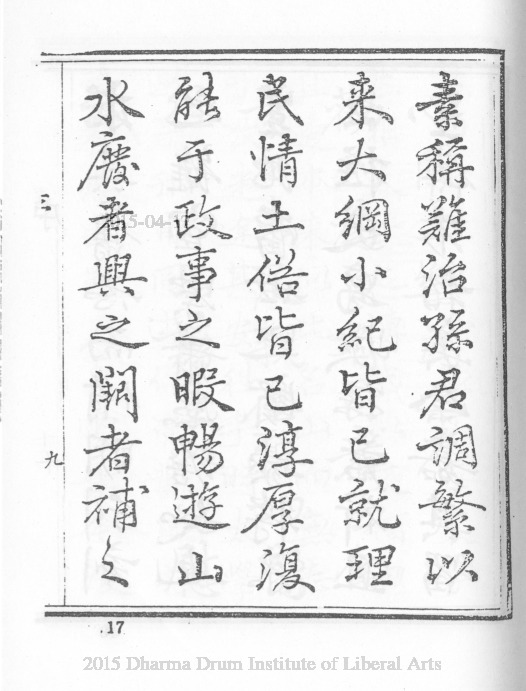 素稱難治孫君調繁以
来大綱小紀皆已就理
民情土俗皆已淳厚復
能于政事之暇暢遊山
水廢者興之闕者補之
三
九
17
2015 Dharma Drum Institute of Liberal Arts